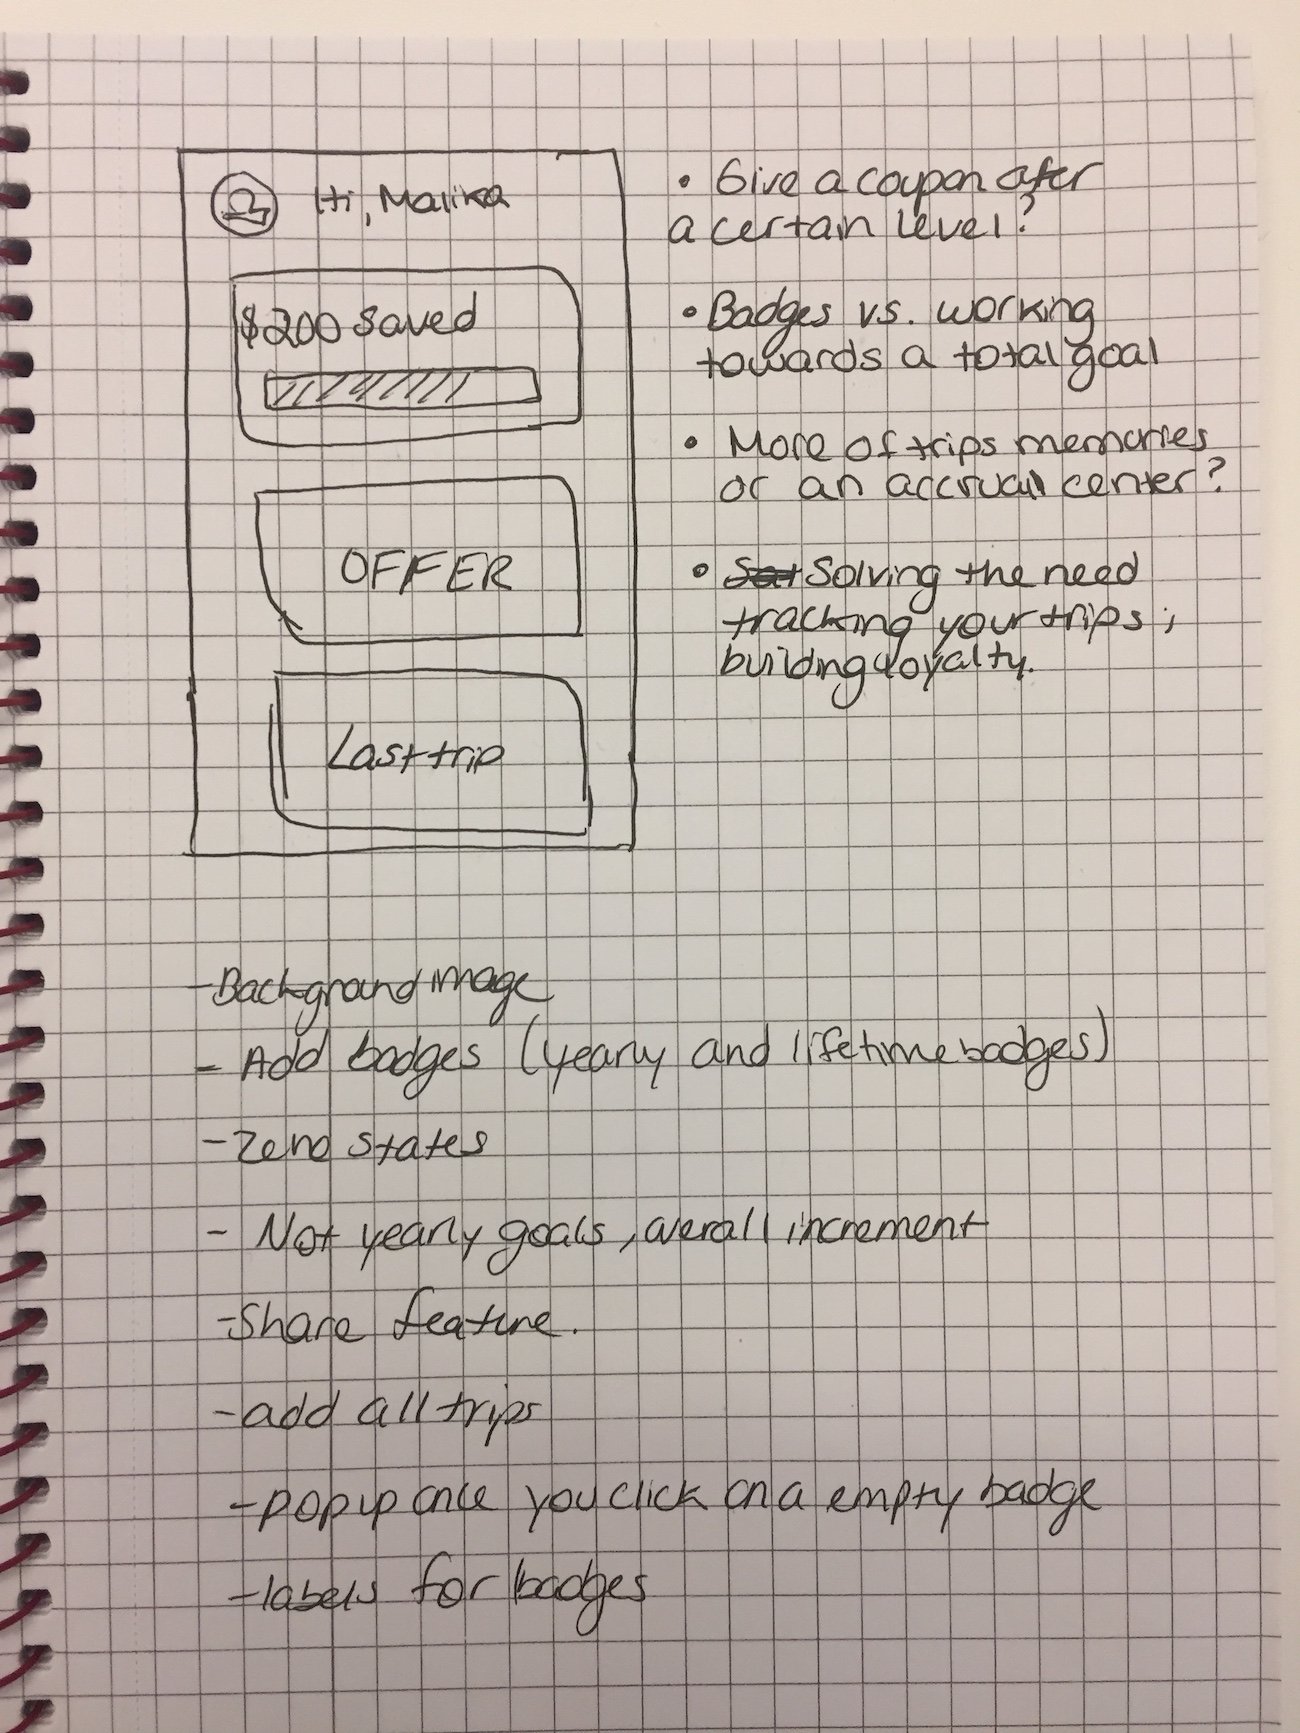 Hi, Malika
$200 Saved
OFFER
Last trip
• Give a coupon after
a certain level?
• Badges vs. working
towards a total goal
• More of trips memories
or an accrual center?
• Solving the need
tracking your trips;
building loyalty.
-Background image
- Add badges (yearly and lifetime badges)
- Zero states
- Not yearly goals, overall increment
-Share feature.
-add all trips
-popup once you click on a empty badge
-labels for badges